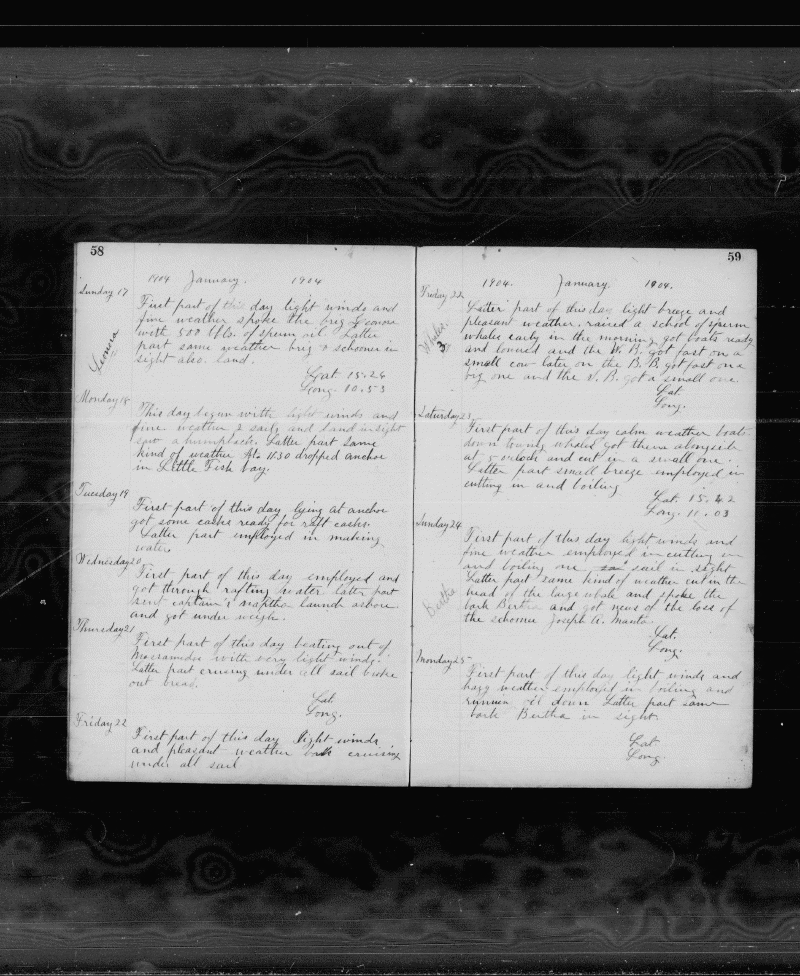 58
1904 January. 1904
Sunday 17
First part of this day light winds and
fine weather spoke the brig Leonora
with 500 bbls. of sperm oil. Latter
part same weather brig & schooner in
sight also land.
Leonora
Lat 15.24
Long. 10.53
Monday 18
This day begun with light winds and
fine weather 2 sails and land in sight
saw a humpback. Latter part same
kind of weather At 11.30 dropped anchor
in Little Fish bay.
Tuesday 19
First part of this day lying at anchor
got some casks ready for raft casks.
Latter part employed in making
water
Wednesday 20
First part of this day employed and
got through rafting water later part
sent captain's naptha launch ashore
and got under weigh.
Thursday 21
First part of this day beating out of
Mossamedes with very light winds.
Latter part cruising under all sail broke
out bread.
Lat.
Long.
Friday 22
First part of this day light winds
and pleasant weather bark cruising
under all sail
59
1904. January. 1904.
Friday 22
Latter part of this day light breeze and
pleasant weather. raised a school of sperm
whales early in the morning got boats ready
and lowered and the W. B. got fast on a
small cow later on the B. B. got fast on a
big one and the S. B. got a small one.
Whales
3
Lat.
Long.
Saturday 23
First part of this day calm weather boats
down towing whales got them alongside
at 5 oclock and cut in a small one.
Latter part small breeze employed in
cutting in and boiling
Lat. 15.42
Long. 11.03
Sunday 24
First part of this day light winds and
fine weather employed in cutting in
and boiling one sail in sight
Latter part same kind of weather cut in the
head of the large whale and spoke the
bark Bertha and got news of the loss of
the schoner Joseph A. Manta.
Bertha
Lat.
Long.
Monday 25
First part of this day light winds and
hazy weather employed in boiling and
runnen oil down Latter part same
bark Bertha in sight.
Lat.
Long.